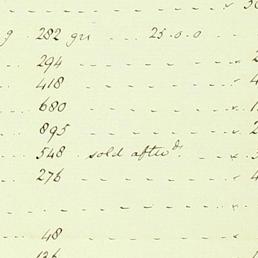 282 grs 25.0.0
294
418
680
895
548 sold afterds.
276
48
136